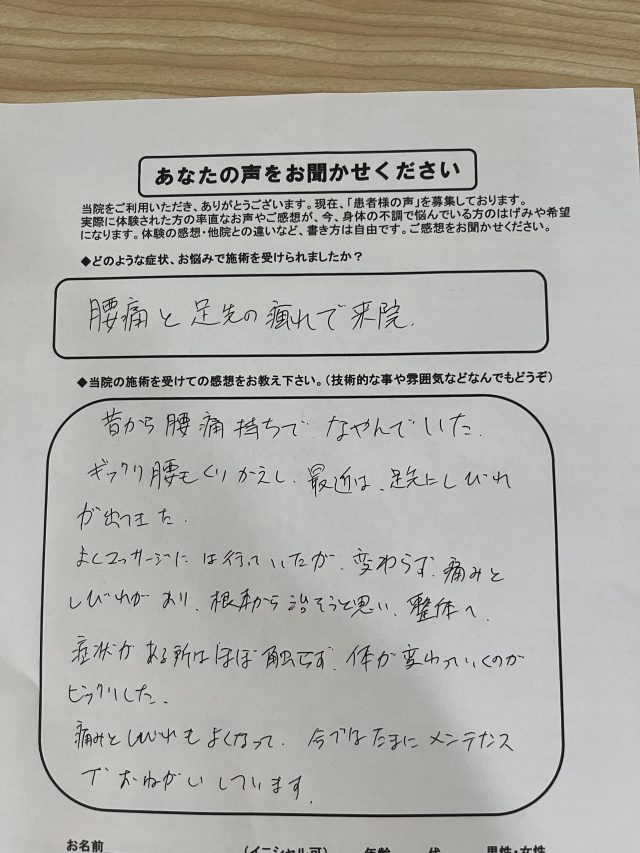 あなたの声をお聞かせください
当院をご利用いただき、ありがとうございます。現在、「患者様の声」を募集しております。
実際に体験された方の率直なお声やご感想が、今、身体の不調で悩んでいる方のはげみや希望
になります。体験の感想・他院との違いなど、書き方は自由です。ご感想をお聞かせください。
◆どのような症状、お悩みで施術を受けられましたか？
腰痛と足先の痺れで来院.
◆当院の施術を受けての感想をお教え下さい。（技術的な事や雰囲気などなんでもどうぞ）
昔から腰痛持ちで、なやんでいた.
ギックリ腰もくりかえし、最近は、足先にしびれ
が出てきた.
よくマッサージには行っていたが、変わらず、痛みと
しびれがあり、根本から治そうと思い、整体へ.
症状がある所はほぼ触らず、体が変わっていくのが
ビックリした.
痛みとしびれもよくなって、今ではたまにメンテナンス
でおねがいしています.
お名前　（イニシャル可）　年齢　代　男性・女性